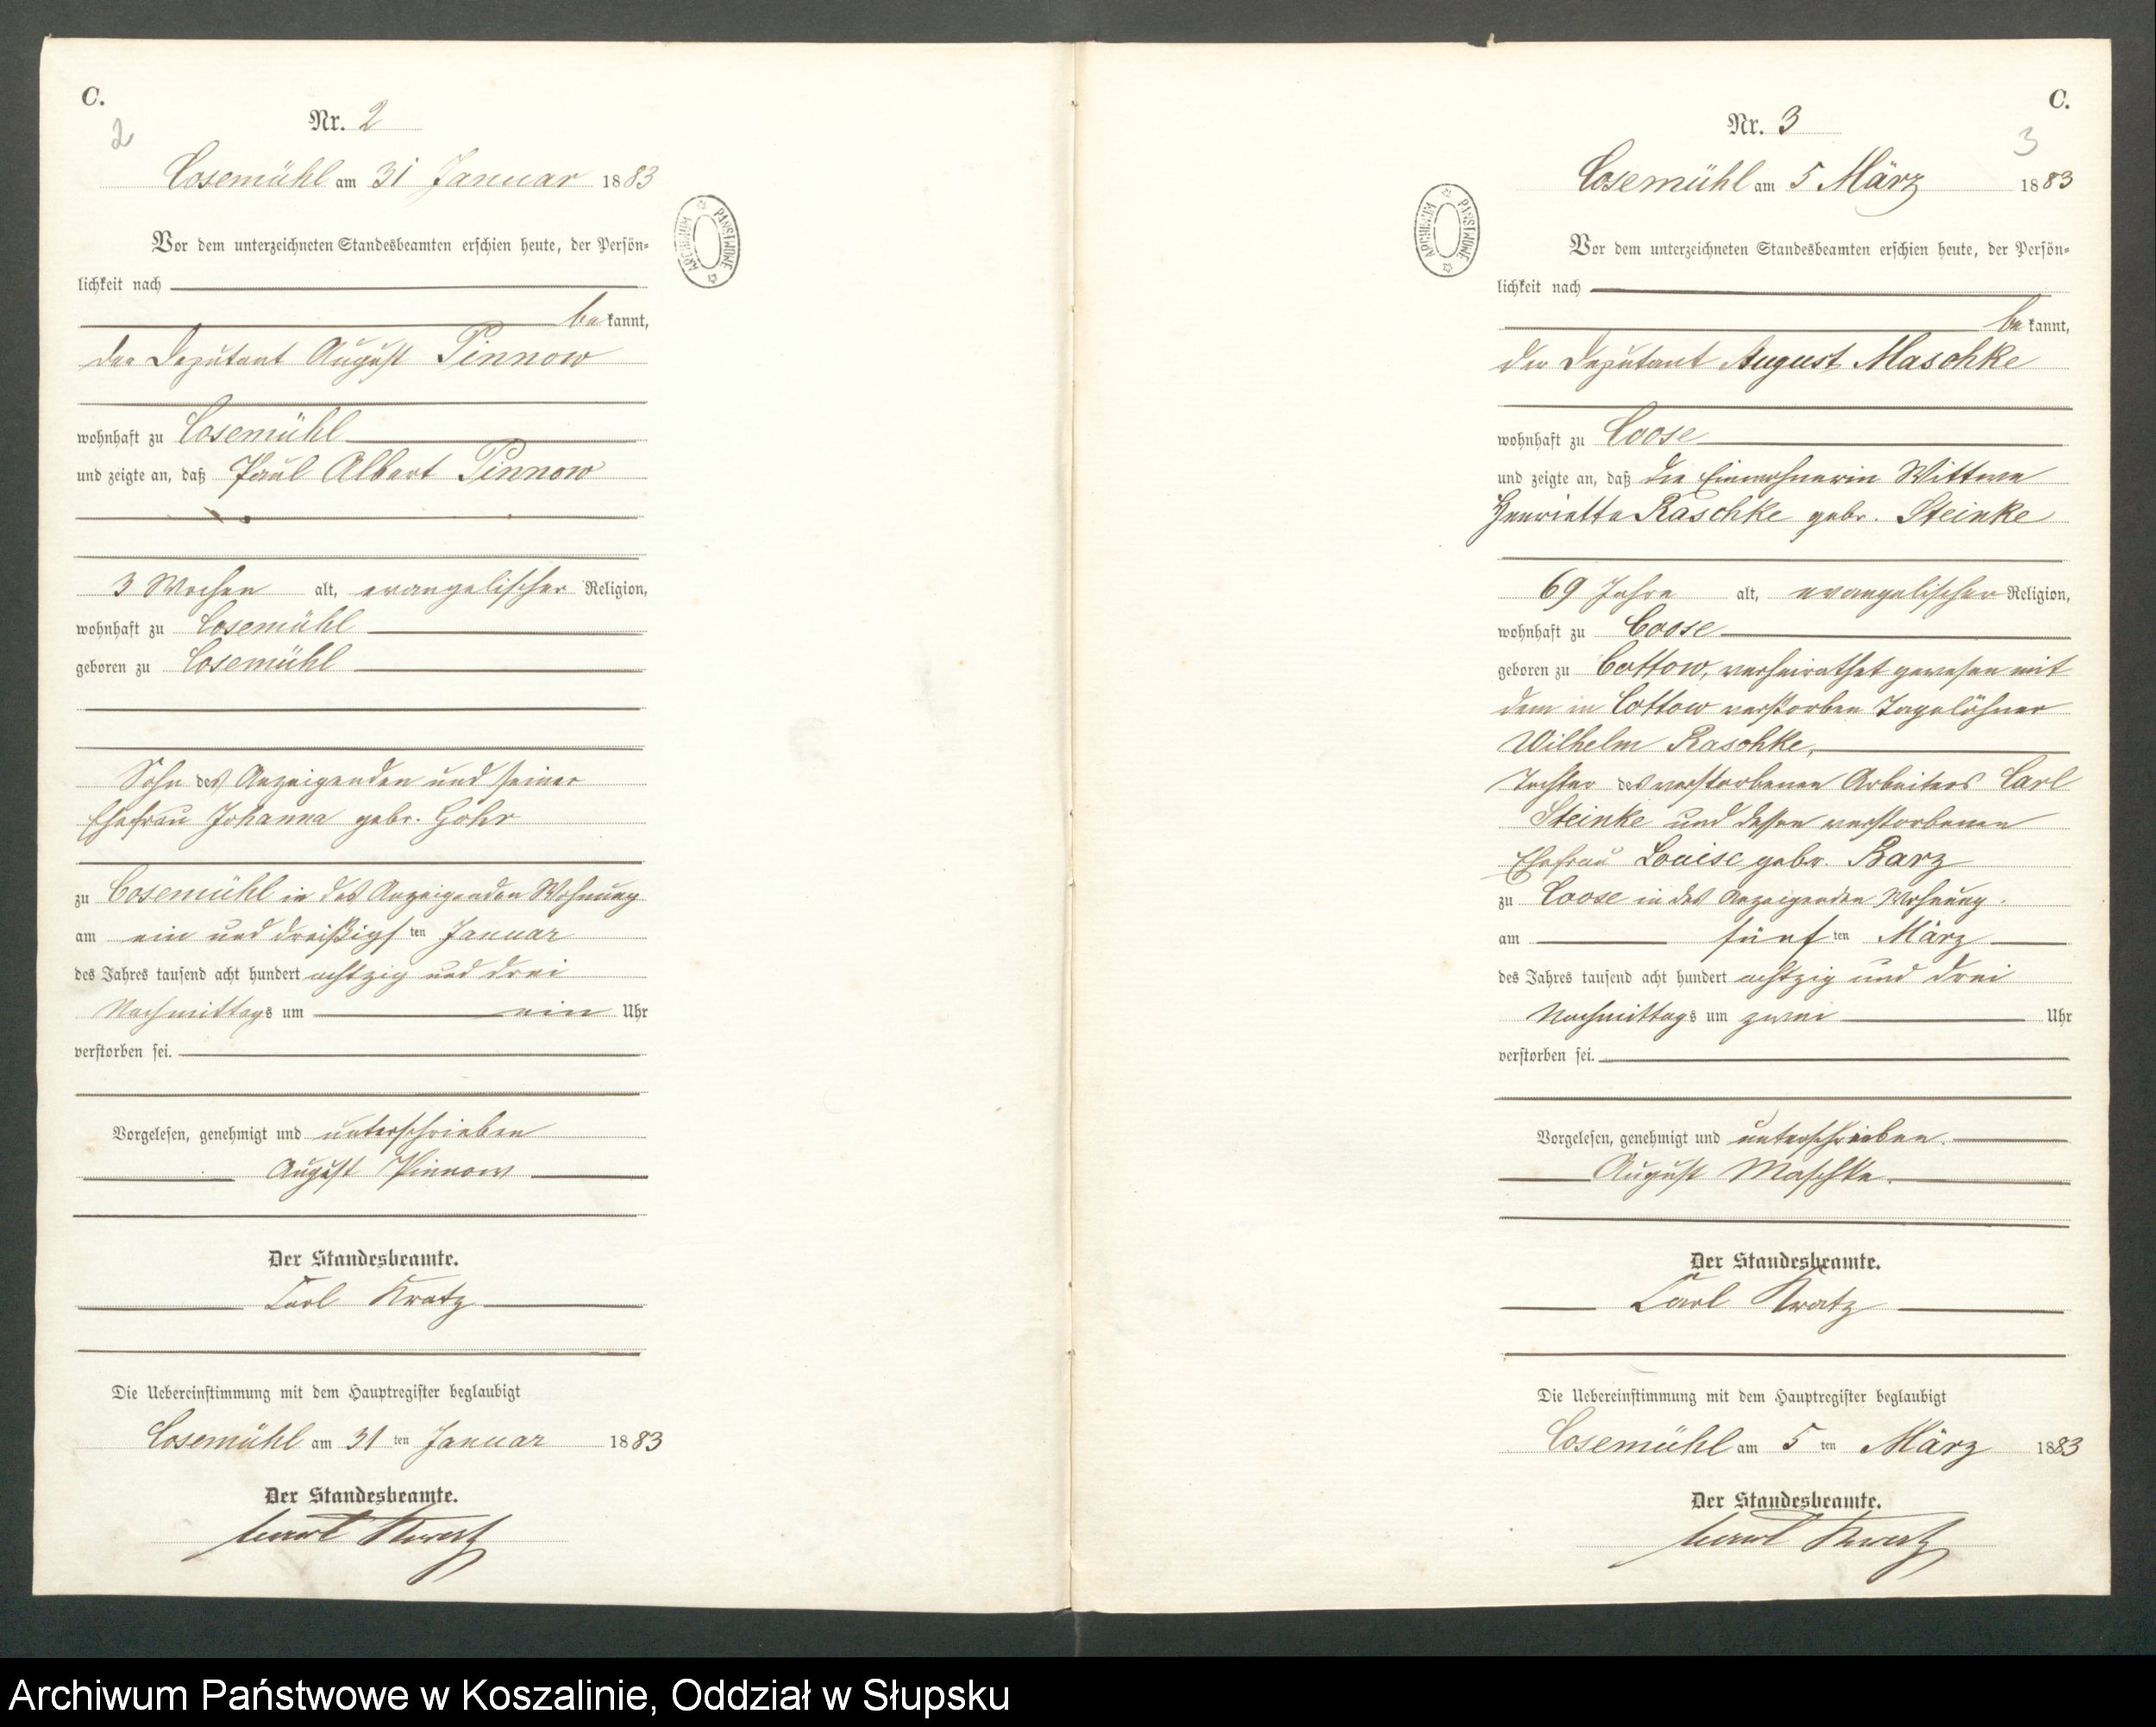 C.
2
Nr. 2
Cosemühl am 31 Januar 1883
ARCHIWUM PAŃSTWOWE
Vor dem unterzeichneten Standesbeamten erschien heute, der Persön-
lichkeit nach
bekannt,
der Deputant August Pinnow
wohnhaft zu Cosemühl
und zeigte an, daß Paul Albert Pinnow
3 Wochen alt, evangelischer Religion,
wohnhaft zu Cosemühl
geboren zu Cosemühl
Sohn des Anzeigenden und seiner
Ehefrau Johanna gebr. Gohr
zu Cosemühl in des Anzeigenden Wohnung
am ein und dreißigsten Januar
des Jahres tausend acht hundert achtzig und drei
Nachmittags um ein Uhr
verstorben sei.
Vorgelesen, genehmigt und unterschrieben
August Pinnow
Der Standesbeamte.
Carl Kratz
Die Uebereinstimmung mit dem Hauptregister beglaubigt
Cosemühl am 31 ten Januar 1883
Der Standesbeamte.
Carl Kratz
C.
3
Nr. 3
Cosemühl am 5 März 1883
ARCHIWUM PAŃSTWOWE
Vor dem unterzeichneten Standesbeamten erschien heute, der Persön-
lichkeit nach
bekannt,
der Deputant August Maschke
wohnhaft zu Coose
und zeigte an, daß die Einwohnerin Wittwe
Henriette Raschke gebr. Steinke
69 Jahre alt, evangelischer Religion,
wohnhaft zu Coose
geboren zu Cottow, verheirathet gewesen mit
dem in Cottow verstorben Tagelöhner
Wilhelm Raschke,
Tochter des verstorbenen Arbeiters Carl
Steinke und dessen verstorbenen
Ehefrau Louise gebr. Barz
zu Coose in des Anzeigenden Wohnung.
am fünften März
des Jahres tausend acht hundert achtzig und drei
Nachmittags um zwei Uhr
verstorben sei.
Vorgelesen, genehmigt und unterschrieben.
August Maschke.
Der Standesbeamte.
Carl Kratz
Die Uebereinstimmung mit dem Hauptregister beglaubigt
Cosemühl am 5 ten März 1883
Der Standesbeamte.
Carl Kratz
Archiwum Państwowe w Koszalinie, Oddział w Słupsku